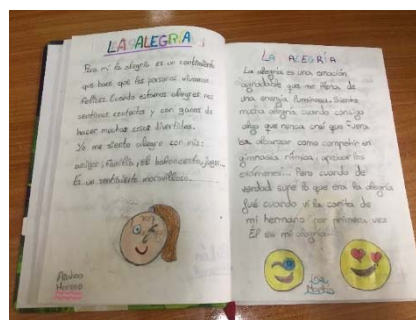 LA ALEGRÍA
Para mí la alegría es un sentimiento
que hace que las personas vivamos
felices. Cuando estamos alegres nos
sentimos contentos y con ganas de
hacer muchas cosas divertidas.
Yo me siento alegre con mis:
amigos, familia, el baloncesto, jugar...
Es un sentimiento maravilloso.
LA ALEGRÍA
La alegría es una emoción
agradable que me llena de
una energía luminosa. Siento
mucha alegría cuando consigo
algo que nunca creí que fuera
a alcanzar como competir en
gimnasia rítmica, aprobar los
exámenes... Pero cuando de
verdad supe lo que era la alegría
fué cuando vi la carita de
mi hermano por primera vez
Él es mi alegría...